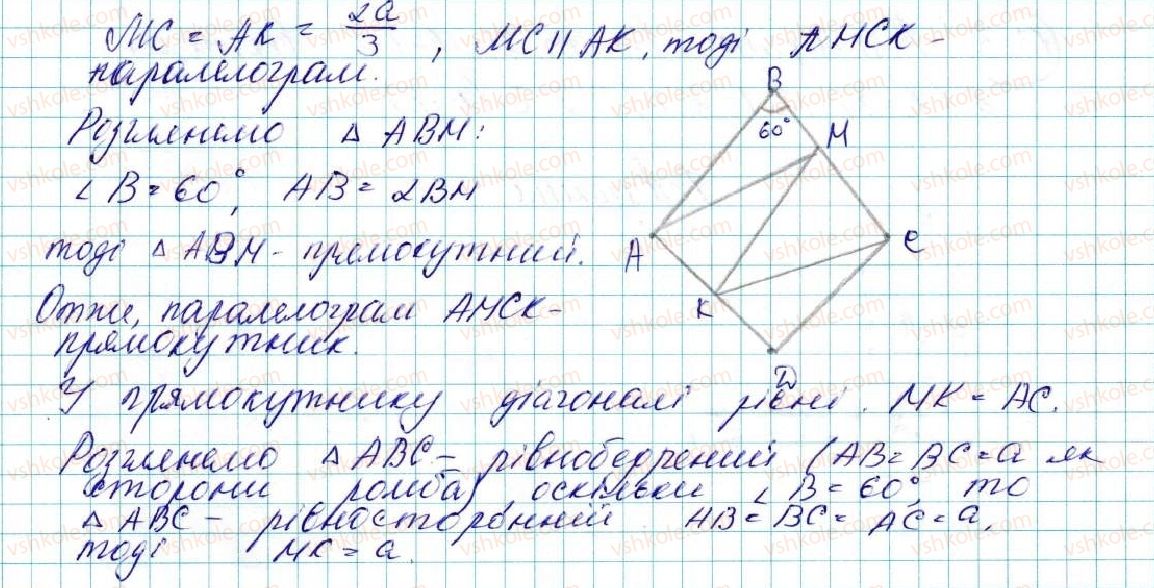 MC = AK = 2a/3 , MC || AK, тоді AMCK -
паралелограм.
Розглянемо △ ABM:
∠B = 60°, AB = 2BM
тоді △ ABM - прямокутний.
Отже, паралелограм AMCK -
прямокутник.
У прямокутнику діагоналі рівні. MK = AC.
Розглянемо △ ABC - рівнобедрений (AB = BC = a як
сторони ромба) оскільки ∠B = 60°, то
△ ABC - рівносторонній AB = BC = AC = a,
тоді MK = a.
B
60°
M
A
C
K
D
vshkole.com